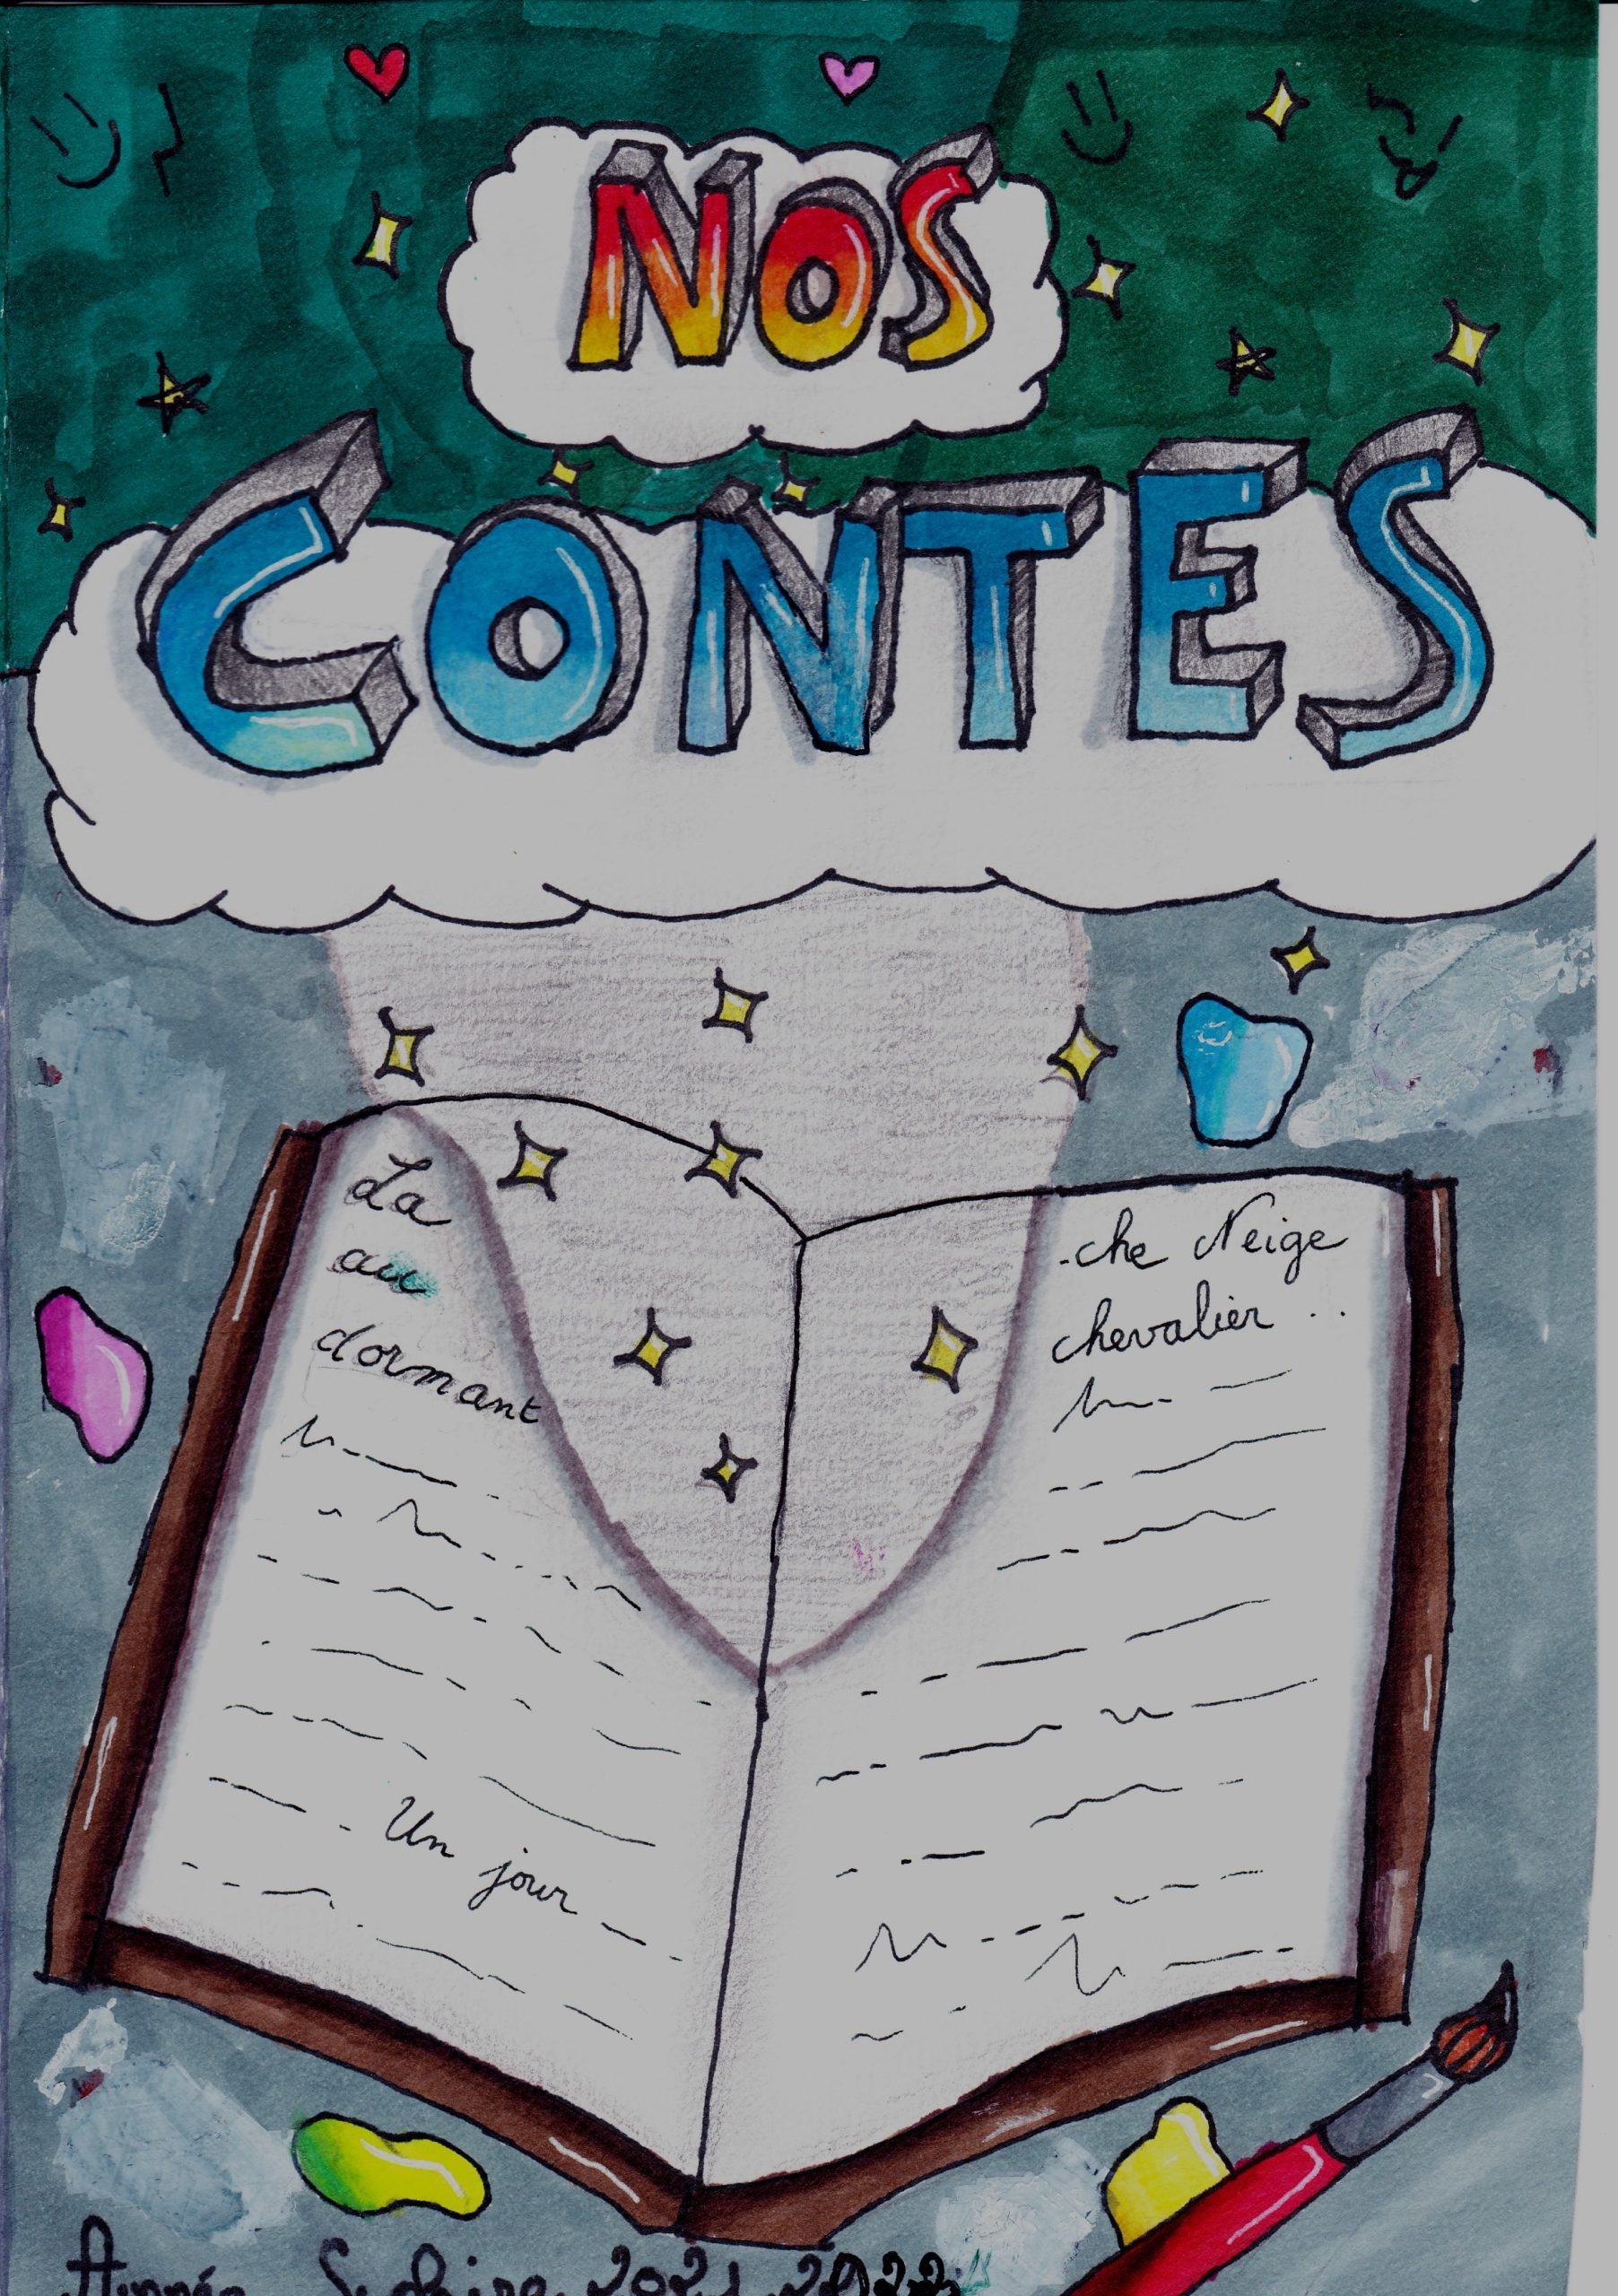 NOS
CONTES
La
au
dormant
Un jour
-che Neige
chevalier ..
Année Scolaire 2021 2022